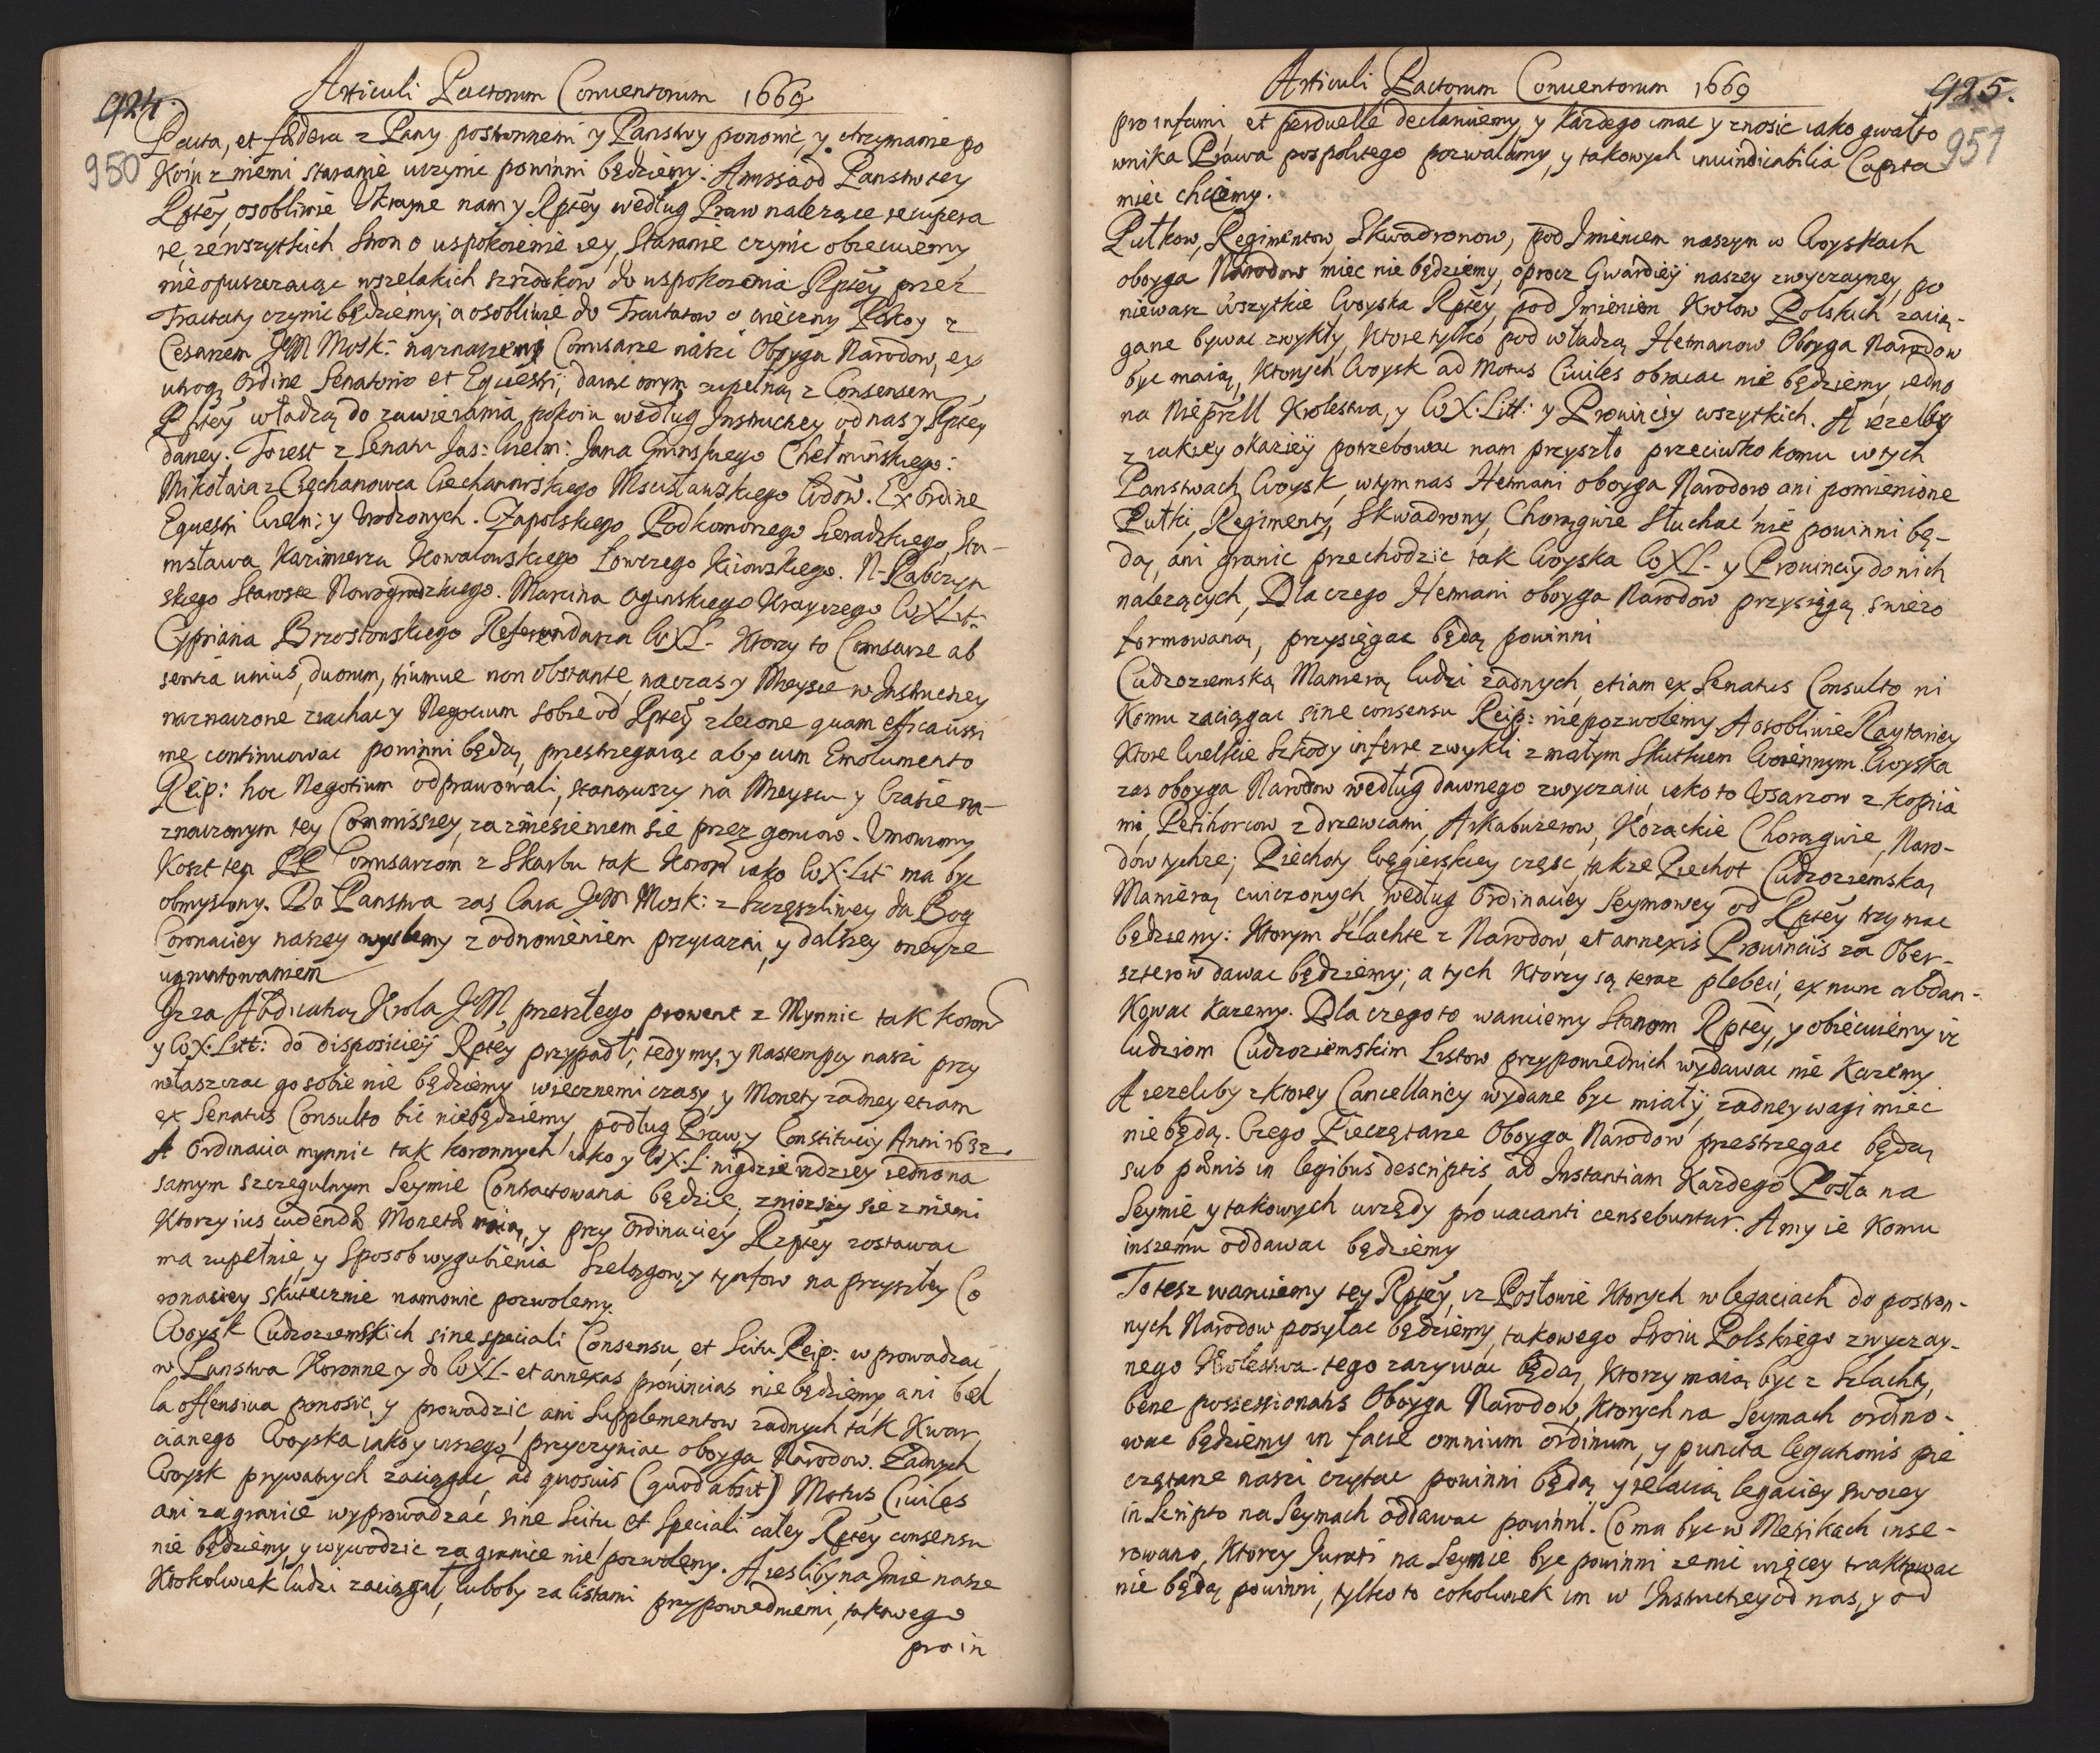 924.
Articuli Pactorum Conventorum 1669
950
Pacta, et foedera z Pany postronnemi y Panstwy ponowic, y otrzymanie po
Koiu z niemi staranie uczynic powinni będziemy. Avulsa od Panstw tey
Rptey, osobliwie Ukrayne nam y Rptey według Praw nalezące recupera
re, ze wszytkich stron o uspokoienie iey, staranie czynic obiecuiemy
nie opuszczaiąc wszelakich szrodkow do uspokoienia Rptey przez
Tractaty czynic będziemy, a osobliwie do Tractatow o wieczny Pokoy z
Cesarzem JeM Mosk: naznaczemy Comisarze naszi Oboyga Narodow, ex
utroq ordine Senatorio et Equestri, dawsc onym zupełną z Consensem
Rptey władzą do zawierania pokoiu według Instructiey od nas y Rptey
daney. To iest z Senatu Jas: Wielm: Jana Gninskiego Chełminskiego:
Mikołaia z Ciechanowca Ciechanowskiego Mscisławskiego Wdow. Ex ordine
Equestri Wielm: y Urodzonych. Czapolskiego Podkomorzego Sieradzkiego, Sta-
nisława Kazimierza Kowalowskiego Łowczego Kiiowskiego. N. Rabczyn
skiego Staroste Nowogrodzkiego. Marcina Oginskiego Krayczego WXLit:
Cypriana Brzostowskiego Referendarza WXL- Ktorzy to Comisarze ab
sentia unius, duorum, triumve non obstante, na czas y Mieysce w Instructiey
naznaczone ziachac y Negocium sobie od Rptey zlecone quam efficacissi
me continuowac powinni będą, przestrzegaiąc aby cum Emolumento
Reip: hoc Negotium odprawowali, stanąwszy na Mieyscu y Czasie na-
znaczonym tey Commissiey, za zniesieniem sie przez goncow. Umowiony
Koszt ten PP Comisarzom z Skarbu tak Koron iako WX:Lit ma byc
obmyslony. Do Panstwa zas Cara JeM Mosk: z Szczęszliwey da Bog
Coronaciey naszey wyslemy z odnowieniem przyiazni, y dalszey oneyze
ugruntowaniem
Iz za Abdicatią Krola JeM przeszłego prowent z Mynnic tak koron
y WX:Litt: do disposiciey Rptey przypadł, tedy my, y Nastempcy naszi przy
właszczac go sobie nie będziemy wiecznemi czasy, y Monety zadney etiam
ex Senatus Consulto bic niebędziemy podług Praw, y Constituciy Anni 1632.
A Ordinacia mynnic tak koronnych iako y WX:L: nigdzie indziey iedno na
samym szczegulnym Seymie Contractowana będzie, zniozszy sie z niemi
Ktorzy ius cudendae Monetae maią, y przy Ordinaciey Rzptey zostawac
ma zupełnie, y Sposob wygubienia Szelązgow, y tynfow na przyszłey Co
ronaciey skutecznie namowic pozwolemy.
Woysk Cudzoziemskich sine speciali Consensu, et Scitu Reip: w prowadzac
w Panstwa Koronne y do WXL- et annexas provincias nie będziemy ani bel
la offensiva ponosic, y prowadzic ani Supplementow zadnych tak Kwar
cianego Woyska iako y inszego przyczyniac oboyga Narodow. Zadnych
Woysk prywatnych zaciągac, ad quosvis (quod absit) Motus Civiles
ani za granice wyprowadzac sine Scitu et Speciali całey Rptey consensu
nie będziemy, y wywodzic za granice nie pozwolemy. A iesliby na Imie nasze
Ktokolwiek ludzi zaciągał, luboby za listami przypowiedniemi, takowego
pro in
Articuli Pactorum Conventorum 1669
925.
951
pro infami et perduelle declaruiemy, y kazdego imac y znosic iako gwałto
wnika Prawa pospolitego pozwalamy, y takowych invindicabilia Capita
miec chcemy.
Pułkow, Regimentow, Skwadronow, pod Imieniem naszym w Woyskach
oboyga Narodow miec nie będziemy, oprocz Gwardiey naszey zwyczayney, po
niewasz wszytkie Woyska Rptey, pod Imieniem Krolow Polskich zacią-
gane bywac zwykły, Ktore tylko pod władzą Hetmanow Oboyga Narodow
byc maią, Ktorych Woysk ad Motus Civiles obracac nie będziemy, iedno
na Nieprzll Krolestwa, y WX:Litt: y Prowinciy wszytkich. A iezelby
z iakiey okaziey potrzebowac nam przyszło przeciwko komu w tych
Panstwach Woysk, w tym nas Hetmani oboyga Narodow, ani pomienione
Pułki, Regimenty, Skwadrony, Chorągwie słuchac nie powinni bę-
dą, ani granic przechodzic tak Woyska WXL- y Prowinciy do nich
nalezących, Dla czego Hetmani oboyga Narodow przysięgą swiezo
formowaną, przysięgac będą powinni
Cudzoziemską Manierą ludzi zadnych, etiam ex Senatus Consulto ni
Komu zaciągac sine consensu Reip: niepozwolimy A osobliwie Raytariey
Ktore Wielkie Szkody inferre zwykli z małym Skutkiem Woiennym. Woyska
zas oboyga Narodow według dawnego zwyczaiu iako to Usarzow z kopiia
mi, Petihorcow z drzewcami, Arkabuzerow, Kozackie Chorągwie, Naro-
dow tychze; Piechoty Węgierskiey częsc, takze Piechot Cudzoziemską
Manierą cwiczonych według Ordinaciey Seymowey od Rptey trzymac
będziemy: Ktorym Szlachte z Narodow, et annexis Provinciis za Ober-
szterow dawac będziemy; a tych Ktorzy są teraz plebeii, ex nunc abdan-
kowac Kazemy. Dla czego to waruiemy Stanom Rptey, y obiecuiemy iz
ludziom Cudzoziemskim Listow przypowiednich wydawac nie Kazemy
A iezeliby z ktorey Cancellariey wydane byc miały, zadney wagi miec
nie będą. Czego Pieczętarze Oboyga Narodow przestrzegac będą
sub poenis in legibus descriptis, ad Instantiam Kazdego Posła na
Seymie y takowych urzędy pro vacanti censebuntur. A my ie Komu
inszemu oddawac będziemy
To tesz waruiemy tey Rptey, iz Posłowie Ktorych w legaciach do postron-
nych Narodow posyłac będziemy, takowego Stroiu Polskiego zwyczay-
nego Krolestwa tego zazywac będą, Ktorzy maią byc z Szlachty,
bene possessionatis Oboyga Narodow, Ktorych na Seymach ordino-
wac będziemy in facie omnium ordinum, y puncta legationis pie
czętarze naszi czytac powinni będą y relacią legaciey swoiey
in Scripto na Seymach oddawac powinni. Co ma byc w Metrikach inse-
rowano, Ktorzy Jurati na Seymie byc powinni ze nic więcey traktowac
nie będą powinni, tylko to cokolwiek im w Instructiey od nas, y od